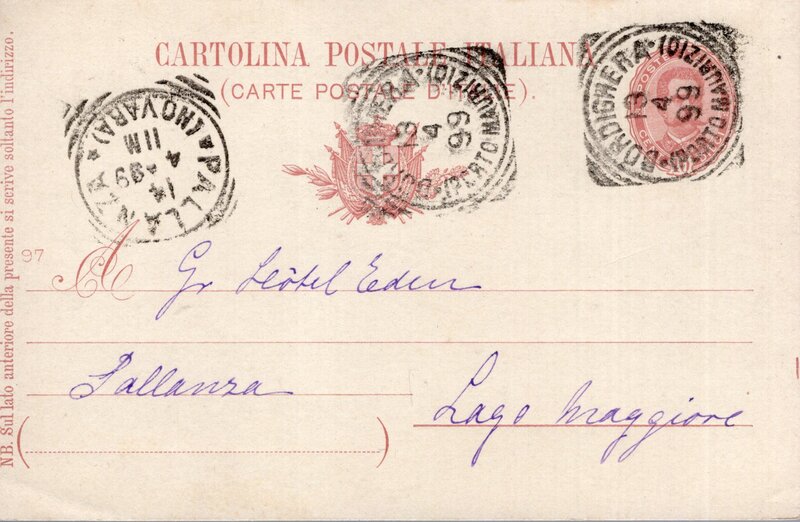 CARTOLINA POSTALE ITALIANA
(CARTE POSTALE D'ITALIE).
PALLANZA (NOVARA)
14
4 99
11 M
BORDIGHERA (PORTO MAURIZIO)
13
4
99
BORDIGHERA (PORTO MAURIZIO)
13
4
99
97
A Gr Hôtel Eden
Pallanza
Lago Maggiore
NB. Sul lato anteriore della presente si scrive soltanto l'indirizzo.